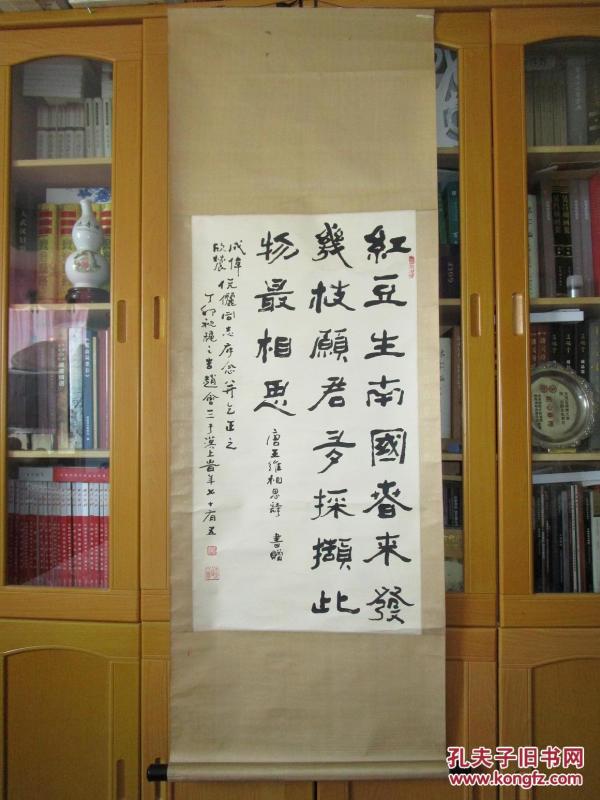 紅豆生南國春來發
幾枝願君多採擷此
物最相思
唐王維相思詩 書贈
成偉
伉儷同志存念并乞正之
丁卯
之書趙會三于漢上時年七十有五
孔夫子旧书网
www.kongfz.com